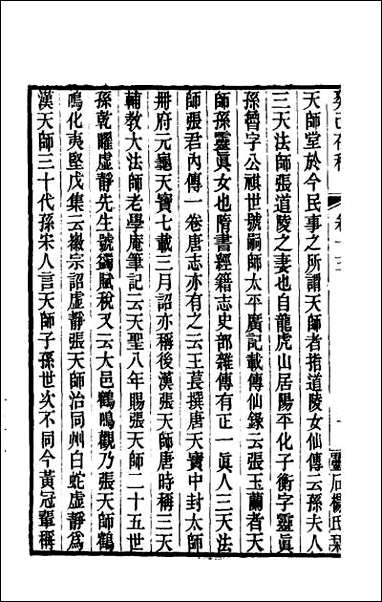 癸巳存稿 卷十三 靈石楊氏栞
天師堂於今民事之所謂天師者指道陵女仙傳云孫夫人
三天法師張道陵之妻也自龍虎山居陽平化子衡字靈真
孫魯字公祺世號嗣師太平廣記載傳仙錄云張玉蘭者天
師孫靈眞女也隋書經籍志史部雜傳有正一眞人三天法
師張君內傳一卷唐志亦有之云王萇撰唐天寶中封太師
冊府元龜天寶七載三月詔亦稱後漢張天師唐時稱三天
輔教大法師老學庵筆記云天聖八年賜張天師二十五世
孫乾曜虛靜先生號蠲賦稅又云大邑鶴鳴觀乃張天師鶴
鳴化夷堅戊集云徽宗詔虛靜張天師治同州白蛇虛靜爲
漢天師三十代孫宋人言天師子孫世次不同今黃冠輩稱